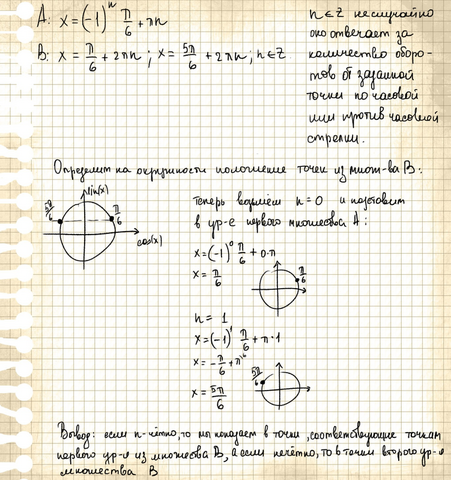 A: x=(-1)ⁿ π/6 + πn
B: x= π/6 + 2πn ; x= 5π/6 + 2πn ; n∈Z.
n∈Z не случайно
оно отвечает за
количество оборо-
тов от заданной
точки по часовой
или против часовой
стрелки.
Определим на окружности положение точек из множ-ва B:
sin(x)
5π/6
π/6
cos(x)
Теперь возьмем n=0 и подставим
в ур-е первого множества A:
x=(-1)⁰ π/6 + 0·π
x= π/6
π/6
n= 1
x=(-1)¹ π/6 + π·1
x=-π/6 + π
x= 5π/6
5π/6
Вывод: если n-чётно, то мы попадаем в точки, соответствующие точкам
первого ур-я из множества B, а если нечётно, то в точки второго ур-я
множества B